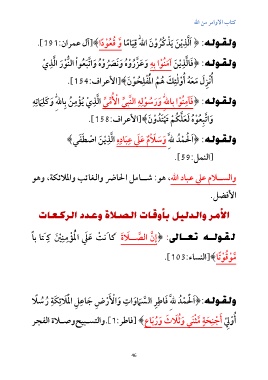 كتاب الأوامر من الله
ولقوله: ﴿ الَّذِيْنَ يَذْكُرُوْنَ اللهَ قِيَامًا وَّ قُعُوْدًا﴾[آل عمران:191].
ولقوله: ﴿فَالَّذِيْنَ آمَنُوْا بِهٖ وَعَزَّرُوْهُ وَنَصَرُوْهُ وَاتَّبَعُوْا النُّوْرَ الَّذِيْ
أُنْزِلَ مَعَهٗ أُوْلٰئِكَ هُمُ الْمُفْلِحُوْنَ﴾[الأعراف:154].
ولقوله: ﴿فَآمِنُوْا بِاللهِ وَرَسُوْلِهِ النَّبِيِّ الْأُمِّيِّ الَّذِيْ يُؤْمِنُ بِاللهِ وَكَلِمَاتِهٖ
وَاتَّبِعُوْهُ لَعَلَّكُمْ تَهْتَدُوْنَ﴾[الأعراف:158].
ولقوله: ﴿الْحَمْدُ لِلّٰهِ وَسَلَامٌ عَلٰى عِبَادِهِ الَّذِيْنَ اصْطَفٰى﴾
[النمل:59].
والسلام على عباد الله، هو: شامل الحاضر والغائب والملائكة، وهو
الأفضل.
الأمر والدليل بأوقات الصلاة وعدد الركعات
لقوله تعالى: ﴿إِنَّ الصَّلَاةَ كَانَتْ عَلَى الْمُؤْمِنِيْنَ كِتَاباً
مَّوْقُوْتًا﴾[النساء:103].
ولقوله: ﴿الْحَمْدُ لِلّٰهِ فَاطِرِ السَّمَاوَاتِ وَالْأَرْضِ جَاعِلِ الْمَلَائِكَةِ رُسُلًا
أُوْلِيْ أَجْنِحَةٍ مَّثْنٰى وَثُلَاثَ وَرُبَاعَ﴾ [فاطر:1]. والتسبيح وصلاة الفجر
٤٦